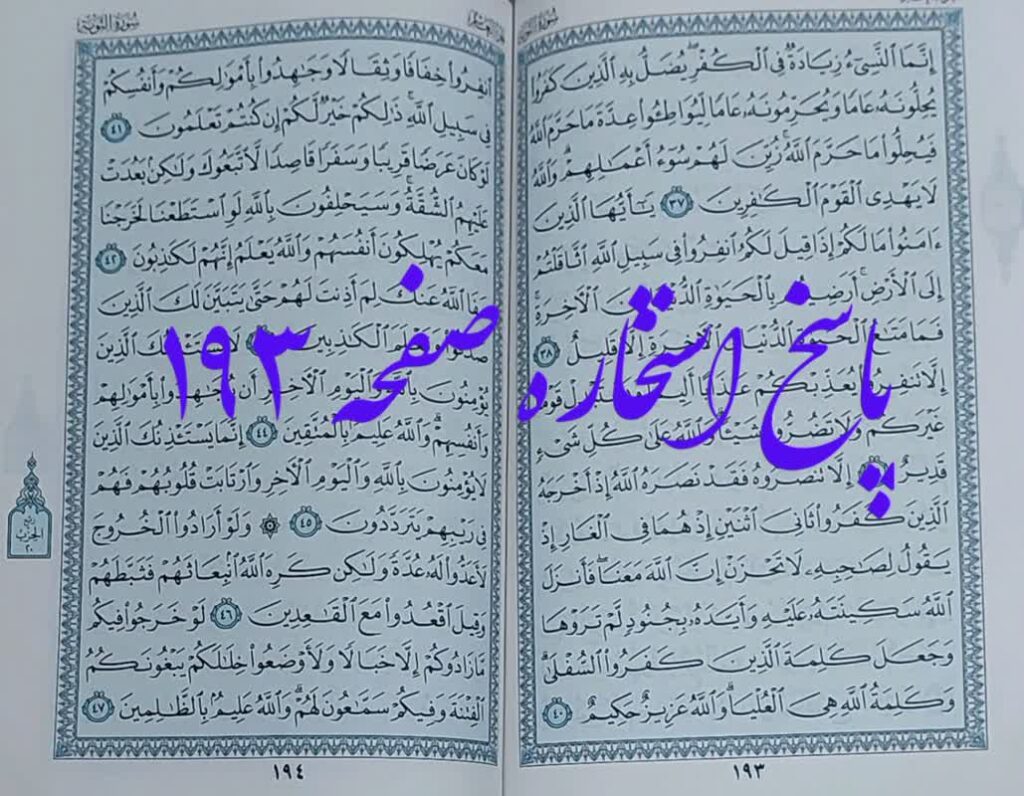 سورة التوبة
إِنَّمَا ٱلنَّسِيٓءُ زِيَادَةٌ فِي ٱلْكُفْرِۖ يُضَلُّ بِهِ ٱلَّذِينَ كَفَرُوا۟
يُحِلُّونَهُۥ عَامًا وَيُحَرِّمُونَهُۥ عَامًا لِّيُوَاطِـُٔوا۟ عِدَّةَ مَا حَرَّمَ ٱللَّهُ
فَيُحِلُّوا۟ مَا حَرَّمَ ٱللَّهُۚ زُيِّنَ لَهُمْ سُوٓءُ أَعْمَـٰلِهِمْۗ وَٱللَّهُ
لَا يَهْدِي ٱلْقَوْمَ ٱلْكَـٰفِرِينَ ٣٧ يَـٰٓأَيُّهَا ٱلَّذِينَ
ءَامَنُوا۟ مَا لَكُمْ إِذَا قِيلَ لَكُمُ ٱنفِرُوا۟ فِي سَبِيلِ ٱللَّهِ ٱثَّاقَلْتُمْ
إِلَى ٱلْأَرْضِۚ أَرَضِيتُم بِٱلْحَيَوٰةِ ٱلدُّنْيَا مِنَ ٱلْـَٔاخِرَةِۚ
فَمَا مَتَـٰعُ ٱلْحَيَوٰةِ ٱلدُّنْيَا فِي ٱلْـَٔاخِرَةِ إِلَّا قَلِيلٌ ٣٨
إِلَّا تَنفِرُوا۟ يُعَذِّبْكُمْ عَذَابًا أَلِيمًا وَيَسْتَبْدِلْ قَوْمًا
غَيْرَكُمْ وَلَا تَضُرُّوهُ شَيْـًٔاۗ وَٱللَّهُ عَلَىٰ كُلِّ شَيْءٍ
قَدِيرٌ إِلَّا تَنصُرُوهُ فَقَدْ نَصَرَهُ ٱللَّهُ إِذْ أَخْرَجَهُ
ٱلَّذِينَ كَفَرُوا۟ ثَانِيَ ٱثْنَيْنِ إِذْ هُمَا فِي ٱلْغَارِ إِذْ
يَقُولُ لِصَـٰحِبِهِۦ لَا تَحْزَنْ إِنَّ ٱللَّهَ مَعَنَاۖ فَأَنزَلَ
ٱللَّهُ سَكِينَتَهُۥ عَلَيْهِ وَأَيَّدَهُۥ بِجُنُودٍ لَّمْ تَرَوْهَا
وَجَعَلَ كَلِمَةَ ٱلَّذِينَ كَفَرُوا۟ ٱلسُّفْلَىٰۗ
وَكَلِمَةُ ٱللَّهِ هِيَ ٱلْعُلْيَاۗ وَٱللَّهُ عَزِيزٌ حَكِيمٌ ٤٠
١٩٣
ٱنفِرُوا۟ خِفَافًا وَثِقَالًا وَجَـٰهِدُوا۟ بِأَمْوَٰلِكُمْ وَأَنفُسِكُمْ
فِي سَبِيلِ ٱللَّهِۚ ذَٰلِكُمْ خَيْرٌ لَّكُمْ إِن كُنتُمْ تَعْلَمُونَ ٤١
لَوْ كَانَ عَرَضًا قَرِيبًا وَسَفَرًا قَاصِدًا لَّٱتَّبَعُوكَ وَلَـٰكِنۢ بَعُدَتْ
عَلَيْهِمُ ٱلشُّقَّةُۚ وَسَيَحْلِفُونَ بِٱللَّهِ لَوِ ٱسْتَطَعْنَا لَخَرَجْنَا
مَعَكُمْ يُهْلِكُونَ أَنفُسَهُمْ وَٱللَّهُ يَعْلَمُ إِنَّهُمْ لَكَـٰذِبُونَ ٤٢
عَفَا ٱللَّهُ عَنكَ لِمَ أَذِنتَ لَهُمْ حَتَّىٰ يَتَبَيَّنَ لَكَ ٱلَّذِينَ
صَدَقُوا۟ وَتَعْلَمَ ٱلْكَـٰذِبِينَ لَا يَسْتَـْٔذِنُكَ ٱلَّذِينَ
يُؤْمِنُونَ بِٱللَّهِ وَٱلْيَوْمِ ٱلْـَٔاخِرِ أَن يُجَـٰهِدُوا۟ بِأَمْوَٰلِهِمْ
وَأَنفُسِهِمْۗ وَٱللَّهُ عَلِيمٌۢ بِٱلْمُتَّقِينَ ٤٤ إِنَّمَا يَسْتَـْٔذِنُكَ ٱلَّذِينَ
لَا يُؤْمِنُونَ بِٱللَّهِ وَٱلْيَوْمِ ٱلْـَٔاخِرِ وَٱرْتَابَتْ قُلُوبُهُمْ فَهُمْ
فِي رَيْبِهِمْ يَتَرَدَّدُونَ ٤٥ ۞ وَلَوْ أَرَادُوا۟ ٱلْخُرُوجَ
لَأَعَدُّوا۟ لَهُۥ عُدَّةً وَلَـٰكِن كَرِهَ ٱللَّهُ ٱنۢبِعَاثَهُمْ فَثَبَّطَهُمْ
وَقِيلَ ٱقْعُدُوا۟ مَعَ ٱلْقَـٰعِدِينَ ٤٦ لَوْ خَرَجُوا۟ فِيكُم
مَّا زَادُوكُمْ إِلَّا خَبَالًا وَلَأَوْضَعُوا۟ خِلَـٰلَكُمْ يَبْغُونَكُمُ
ٱلْفِتْنَةَ وَفِيكُمْ سَمَّـٰعُونَ لَهُمْۗ وَٱللَّهُ عَلِيمٌۢ بِٱلظَّـٰلِمِينَ ٤٧
١٩٤
ربع
الحزب
٢٠
پاسخ استخاره صفحه ۱۹۳